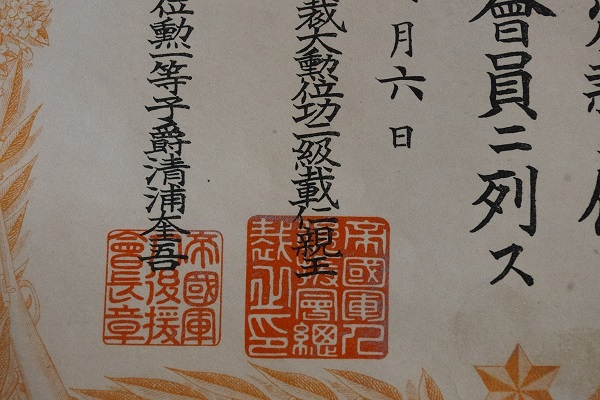 會員ニ列ス
月六日
裁大勲位功二級載仁親王
位勲一等子爵清浦奎吾
帝國軍人後援會總裁之印
帝國軍人後援會長章